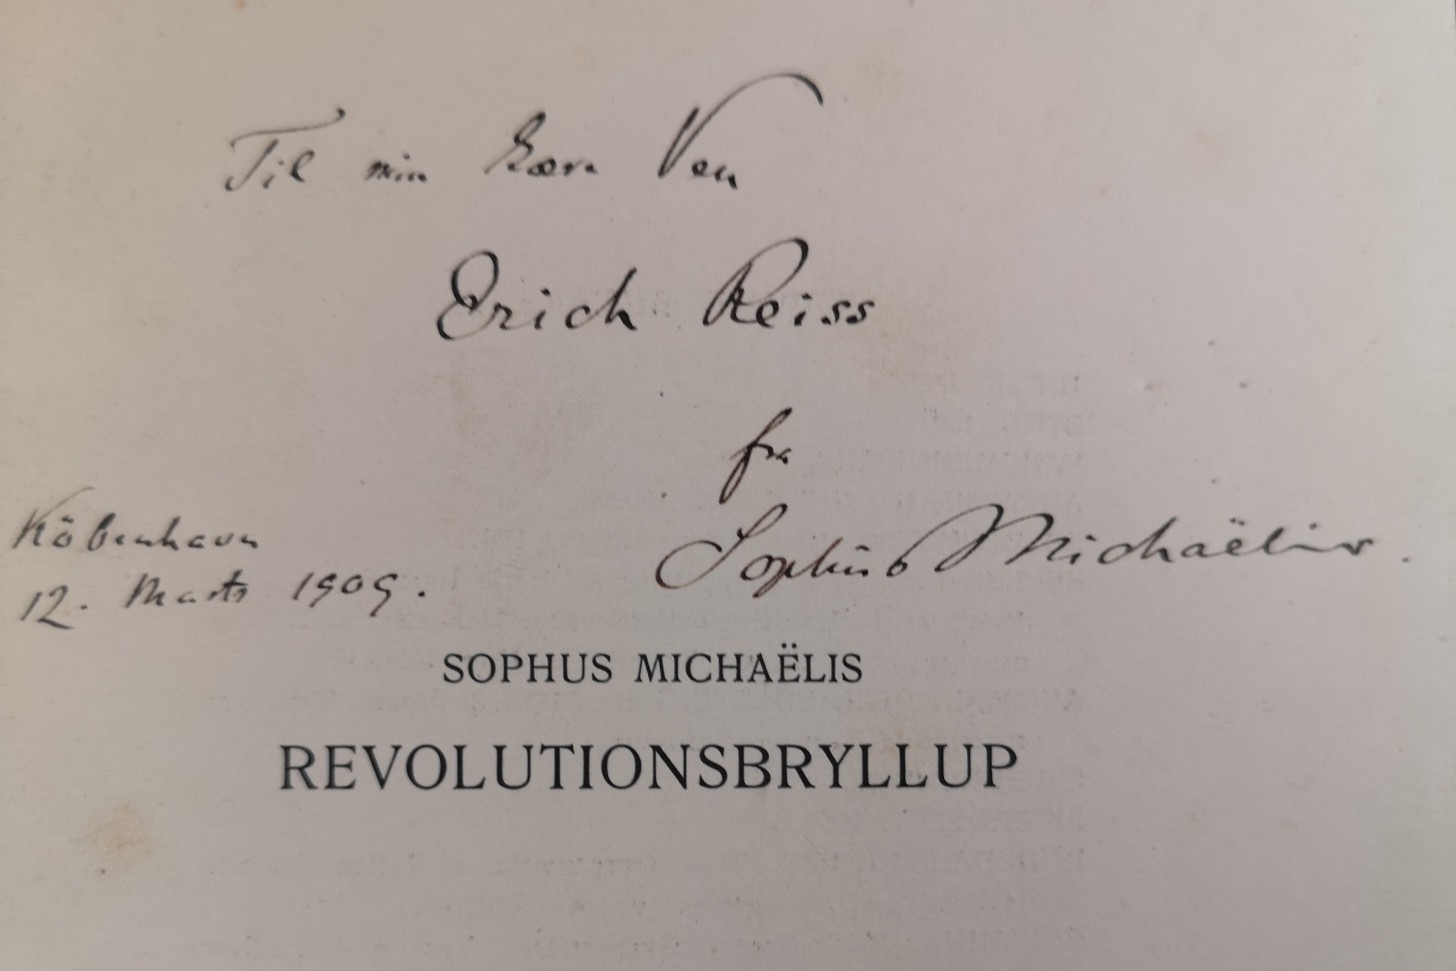 Til min kære Ven
Erich Reiss
fra
Sophus Michaëlis.
Köbenhavn
12. Marts 1909.
SOPHUS MICHAËLIS
REVOLUTIONSBRYLLUP